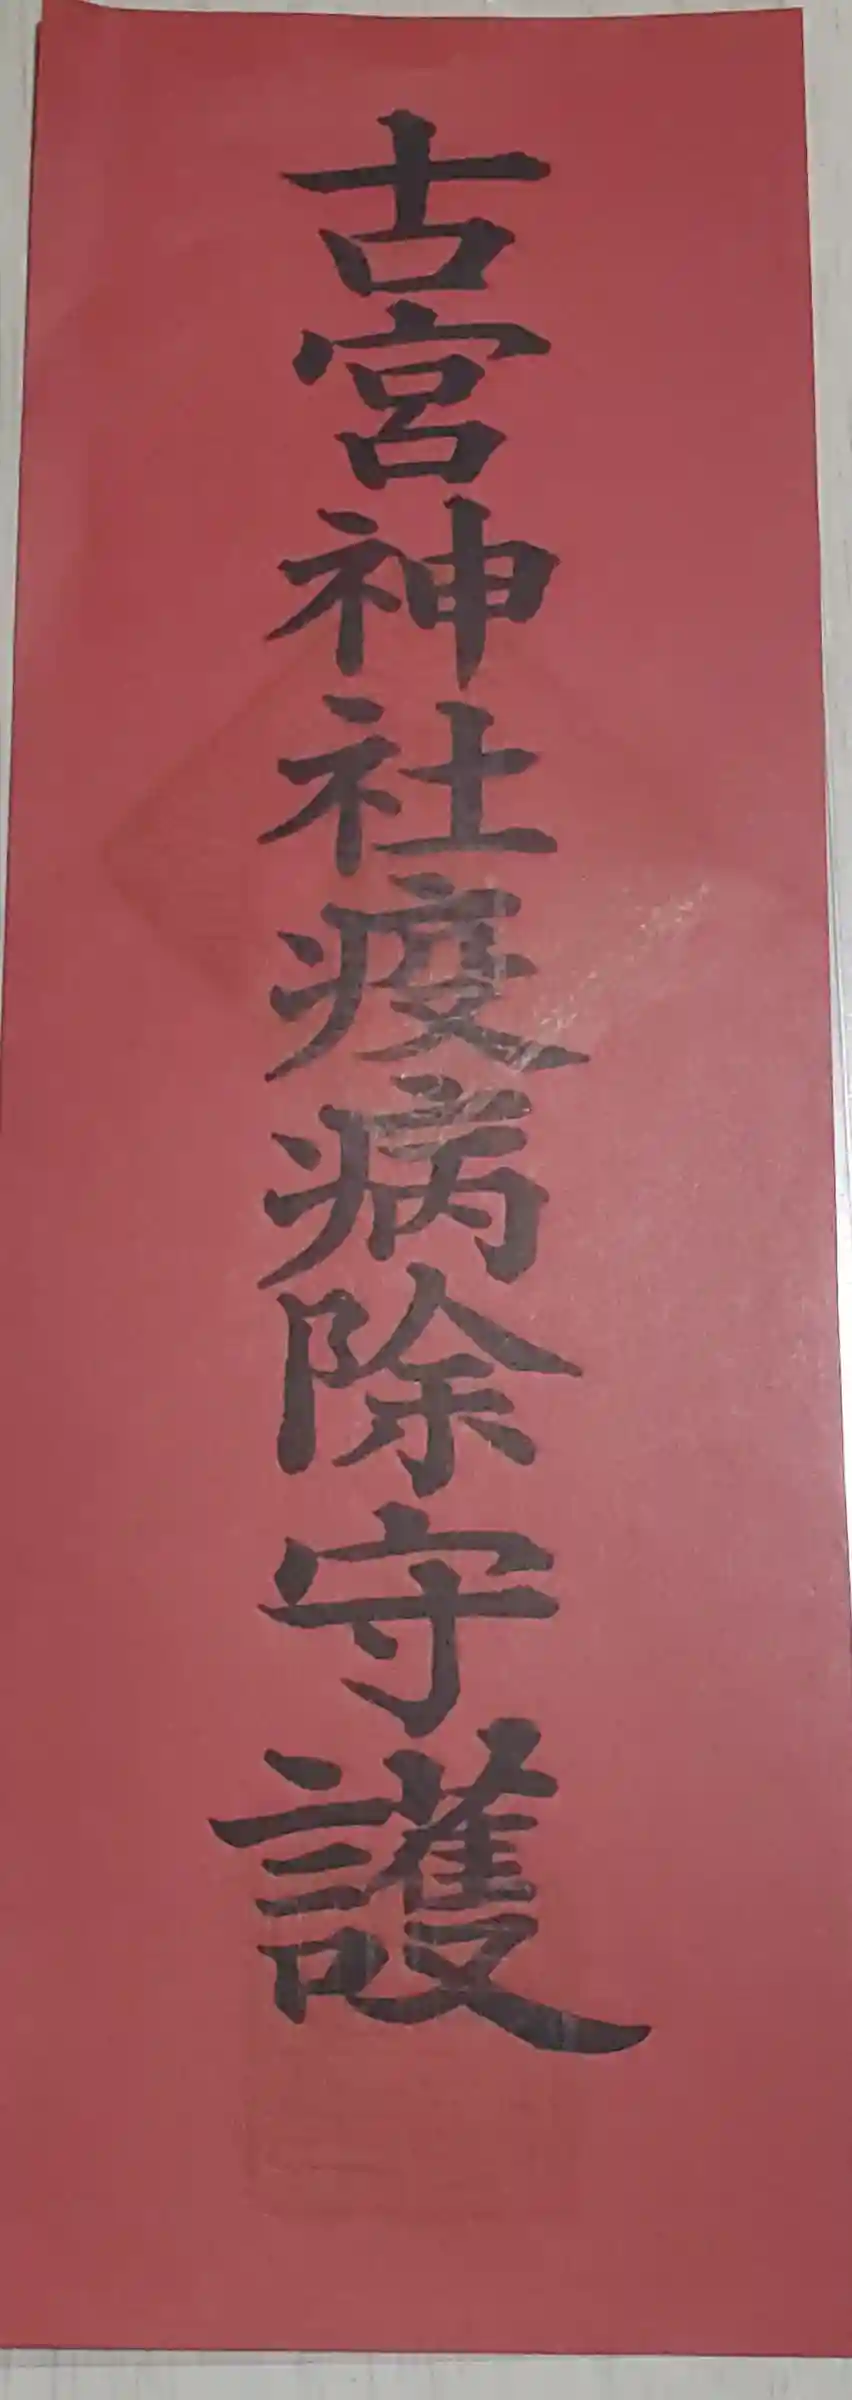 古宮神社疫病除守護